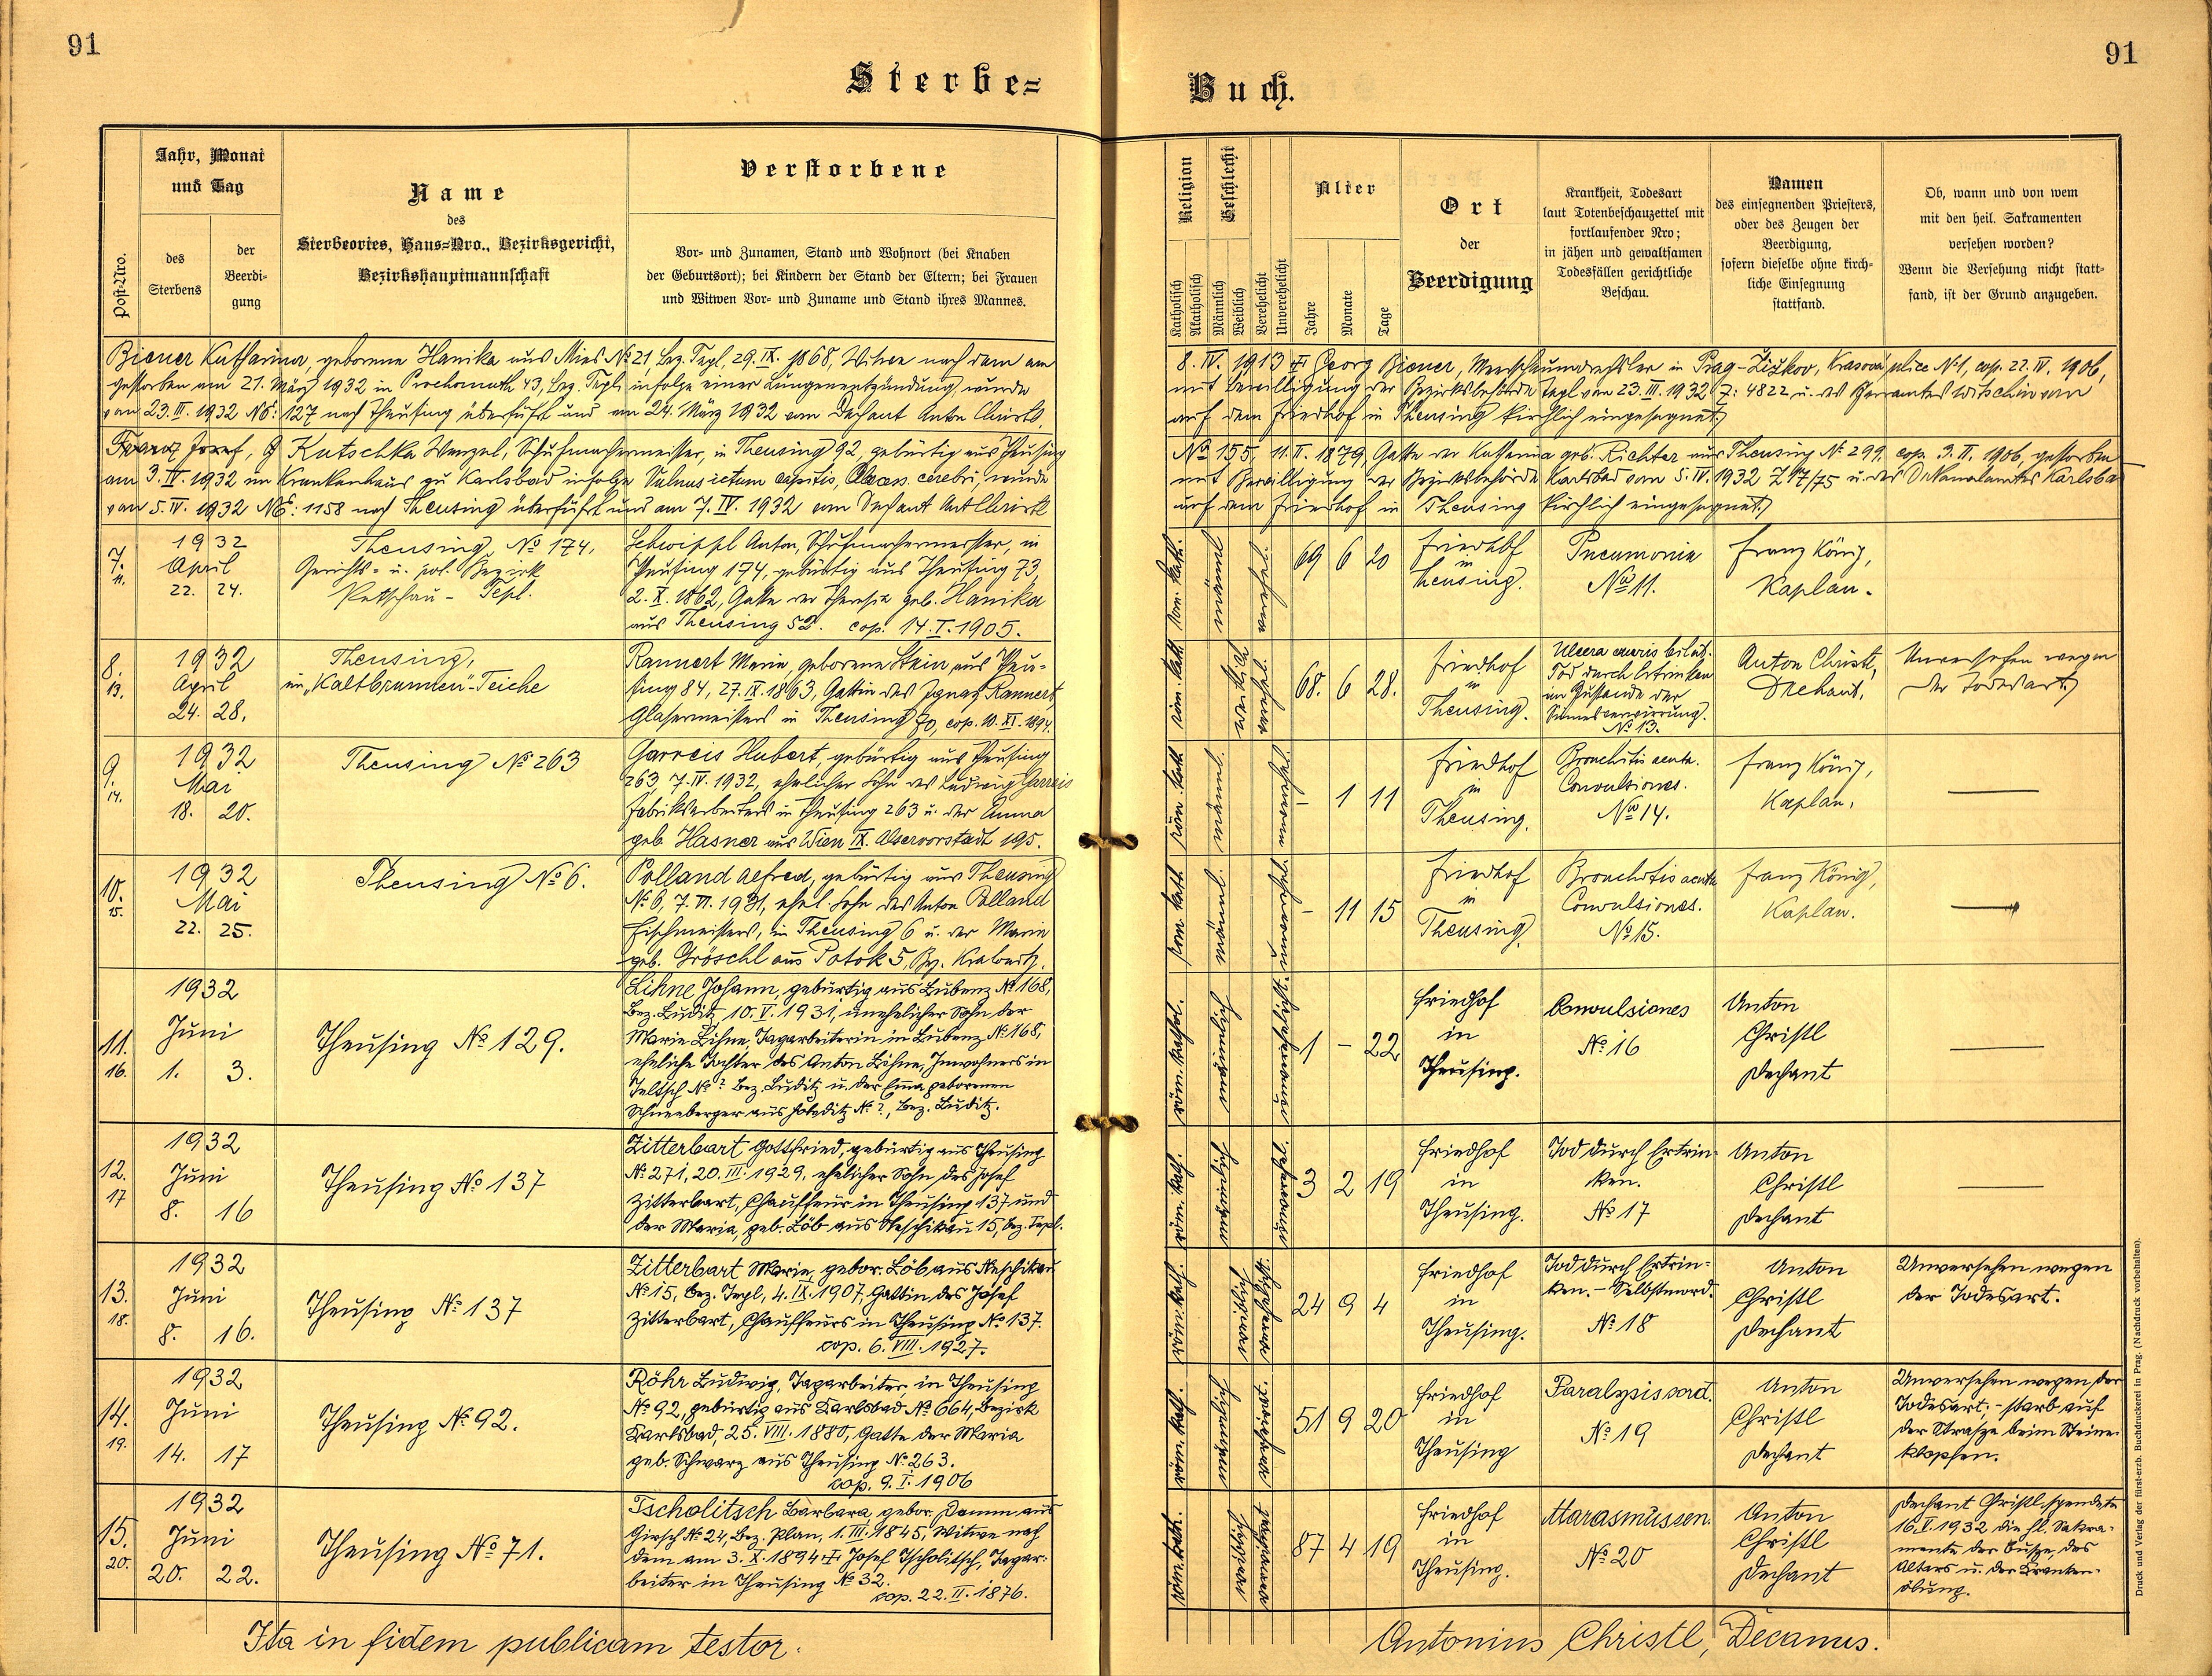 91
91
Sterbe=
Buch.
Post-Nro.
Jahr, Monat
und Tag
des
Sterbens
der
Beerdi-
gung
Name
des
Sterbeortes, Haus=Nro., Bezirksgericht,
Bezirkshauptmannschaft
Verstorbene
Vor- und Zunamen, Stand und Wohnort (bei Knaben
der Geburtsort); bei Kindern der Stand der Eltern; bei Frauen
und Witwen Vor- und Zuname und Stand ihres Mannes.
Religion
Katholisch
Akatholisch
Geschlecht
Männlich
Weiblich
Verehelicht
Unverehelicht
Alter
Jahre
Monate
Tage
Ort
der
Beerdigung
Krankheit, Todesart
laut Totenbeschauzettel mit
fortlaufender Nro;
in jähen und gewaltsamen
Todesfällen gerichtliche
Beschau.
Namen
des einsegnenden Priesters,
oder des Zeugen der
Beerdigung,
sofern dieselbe ohne kirch-
liche Einsegnung
stattfand.
Ob, wann und von wem
mit den heil. Sakramenten
versehen worden?
Wenn die Versehung nicht statt-
fand, ist der Grund anzugeben.
Biener Katharina, geborene Hanika aus Mies No 21, Bez. Tepl, 29. IX. 1868, Witwe nach dem am
8. IV. 1913 Georg Biener, Meerschaumdrechsler in Prag-Žižkov, Krasova ulice No 1, cop. 22. IV. 1906,
gestorben am 21. März 1932 in Prochomuth 43, Bez. Tepl, infolge einer Lungenentzündung, wurde
mit Bewilligung der Bezirksbehörde Tepl vom 23. III. 1932 Z: 4822 u. des Pfarramtes Witschin vom
vom 23. III. 1932 No: 127 nach Theusing überführt und am 24. März 1932 vom Dechant Anton Christl
auf dem Friedhof in Theusing kirchlich eingesegnet.
Kutschka Wenzel, Schuhmachermeister, in Theusing 92, gebürtig aus Theusing
No 155, 11. II. 1879, Gatte der Katharina geb. Richter aus Theusing No 299. cop. 3. II. 1906, gestorben
am 3. IV. 1932 im Krankenhaus zu Karlsbad infolge Vulnus ictum capitis, Absces. cerebri, wurde
mit Bewilligung der Bezirksbehörde Karlsbad vom 5. IV. 1932 Z 17/75 u. des Dekanalamtes Karlsbad
vom 5. IV. 1932 No: 1158 nach Theusing überführt und am 7. IV. 1932 vom Dechant Ant. Christl
auf dem Friedhof in Theusing kirchlich eingesegnet.
7.
11.
1932
April
22. 24.
Theusing, No 174,
Gerichts- u. pol. Bezirk
Petschau - Tepl.
Schwippl Anton, Schuhmachermeister, in
Theusing 174, gebürtig aus Theusing 73,
2. X. 1862, Gatte der Theresia geb. Hanika
aus Theusing 52. cop. 14. I. 1905.
röm. kath.
männl.
verehel.
69 6 20
Friedhof
in
Theusing.
Pneumonia
No 11.
Franz König,
Kaplan.
8.
13.
1932
April
24. 28.
Theusing,
im „Kaltbrunnen"-Teiche
Rannert Marie, geborene Stein, aus Theu-
sing 84, 27. IX. 1863, Gattin des Ignaz Rannert,
Glasermeisters in Theusing 70, cop. 10. XI. 1894.
röm. kath
weiblich
verehel.
68. 6 28.
Friedhof
in
Theusing.
Ulcera cruris bilat.
Tod durch Ertrinken
im Zustande der
Sinnesverwirrung.
No 13.
Anton Christl,
Dechant,
Unversehen wegen
der Todesart
9.
14.
1932
Mai
18. 20.
Theusing No 263
Garreis Hubert, gebürtig aus Theusing
263, 7. IV. 1932, ehelicher Sohn des Ludwig Garreis
Fabriksarbeiters in Theusing 263 u. der Anna
geb. Hasner aus Wien IX. Alservorstadt 195.
röm. kath
männl.
unverehel.
- 1 11
Friedhof
in
Theusing.
Bronchitis acuta.
Convulsiones.
No 14.
Franz König,
Kaplan.
10.
15.
1932
Mai
22. 25.
Theusing No 6.
Polland Alfred, gebürtig aus Theusing
No 6, 7. VI. 1931, ehel. Sohn des Anton Polland
Tischmeisters, in Theusing 6 u. der Marie
geb. Gröschl aus Potok 5, Bez. Kralowitz.
röm. kath.
männl.
unverehel.
- 11 15
Friedhof
in
Theusing.
Bronchitis acuta
Convulsiones.
No 15.
Franz König,
Kaplan.
11.
16.
1932
Juni
1. 3.
Theusing No 129.
Lihne Johann, gebürtig aus Lubenz No 168,
Bez. Luditz, 10. V. 1931, unehelicher Sohn der
Marie Lihne, Tagarbeiterin in Lubenz No 168,
eheliche Tochter des Anton Lihne, Inwohners in
Teltsch No? Bez. Luditz u. der Emma geborenen
Schneeberger aus No ?, Bez. Luditz.
röm. kathol.
männlich
unverehelicht.
1 - 22
Friedhof
in
Theusing.
Convulsiones
No 16
Anton
Christl
Dechant
12.
17
1932
Juni
8. 16
Theusing No 137
Zitterbart Gottfried, gebürtig aus Theusing
No 271, 20. III. 1929, ehelicher Sohn des Josef
Zitterbart, Chauffeur in Theusing 137 und
der Maria, geb. Löb aus Neschikau 15, Bez. Tepl.
röm. kath.
männlich
unverehel.
3 2 19
Friedhof
in
Theusing.
Tod durch Ertrin-
ken.
No 17
Anton
Christl
Dechant
13.
18.
1932
Juni
8. 16.
Theusing No 137
Zitterbart Marie, gebor. Löb aus Neschikau
No 15, Bez. Tepl, 4. IX. 1907, Gattin des Josef
Zitterbart, Chauffeurs in Theusing No 137.
cop. 6. VIII. 1927.
röm. kath.
weiblich
verehelicht.
24 9 4
Friedhof
in
Theusing.
Tod durch Ertrin-
ken. - Selbstmord.
No 18
Anton
Christl
Dechant
Unversehen wegen
der Todesart.
14.
19.
1932
Juni
14. 17
Theusing No 92.
Röhr Ludwig, Tagarbeiter, in Theusing
No 92, gebürtig aus Karlsbad No 664, Bezirk
Karlsbad, 25. VIII. 1880, Gatte der Maria
geb. Schwarz aus Theusing No 263.
cop. 9. I. 1906
röm. kath.
männlich
verehelicht.
51 9 20
Friedhof
in
Theusing
Paralysis cord.
No 19
Anton
Christl
Dechant
Unversehen wegen der
Todesart; - starb auf
der Straße beim Steine-
klopfen.
15.
20.
1932
Juni
20. 22.
Theusing No 71.
Tscholitsch Barbara, gebor. Damm aus
Girsch No 24, Bez. Plan, 1. III. 1845, Witwe nach
dem am 3. X. 1894 Josef Tscholitsch, Tagar-
beiter in Theusing No 32.
cop. 22. II. 1876.
röm. kath.
weiblich
verwitwet
87 4 19
Friedhof
in
Theusing.
Marasmus sen.
No 20
Anton
Christl
Dechant
Dechant Christl spendete
16. V. 1932 die hl. Sakra-
mente der Buße, des
Altars u. der Kranken-
ölung.
Ita in fidem publicam testor:
Antonius Christl, Decanus.
Druck und Verlag der fürst-erzb. Buchdruckerei in Prag. (Nachdruck vorbehalten).